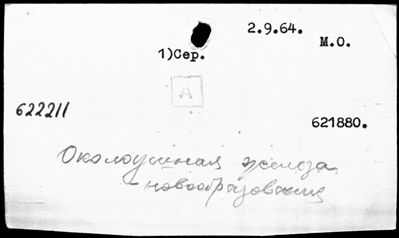 2.9.64.
М.О.
1)Сер.
А
622211
621880.
Околоушная железа
новообразования